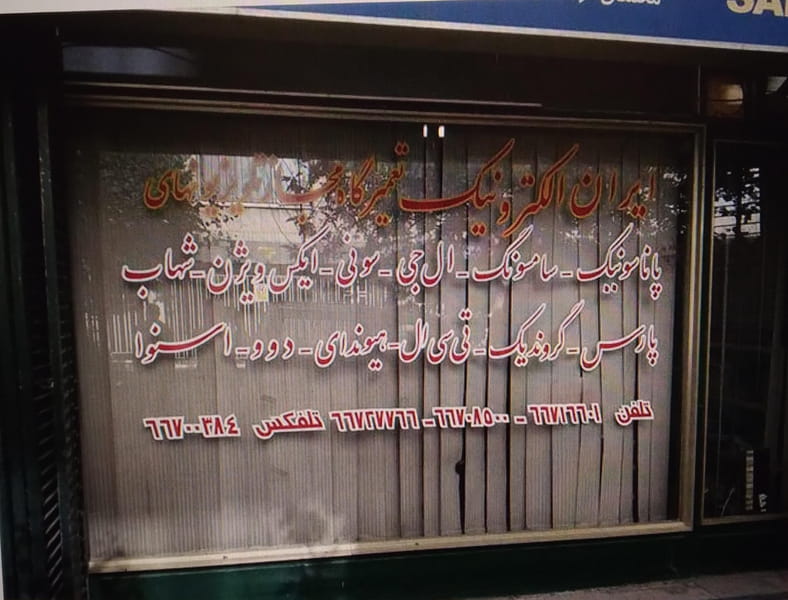 SA
ایران الکترونیک تعمیرگاه مجاز تلویزیونهای
پاناسونیک - سامسونگ - ال جی - سونی - ایکس ویژن - شهاب
پارس - گروندیک - تی سی ال - هیوندای - دوو - اسنوا
تلفن ۶۶۷۱۶۶۰۱ - ۶۶۷۰۸۵۰۰ - ۶۶۷۲۷۷۶۶ تلفکس ۶۶۷۰۰۳۸۴